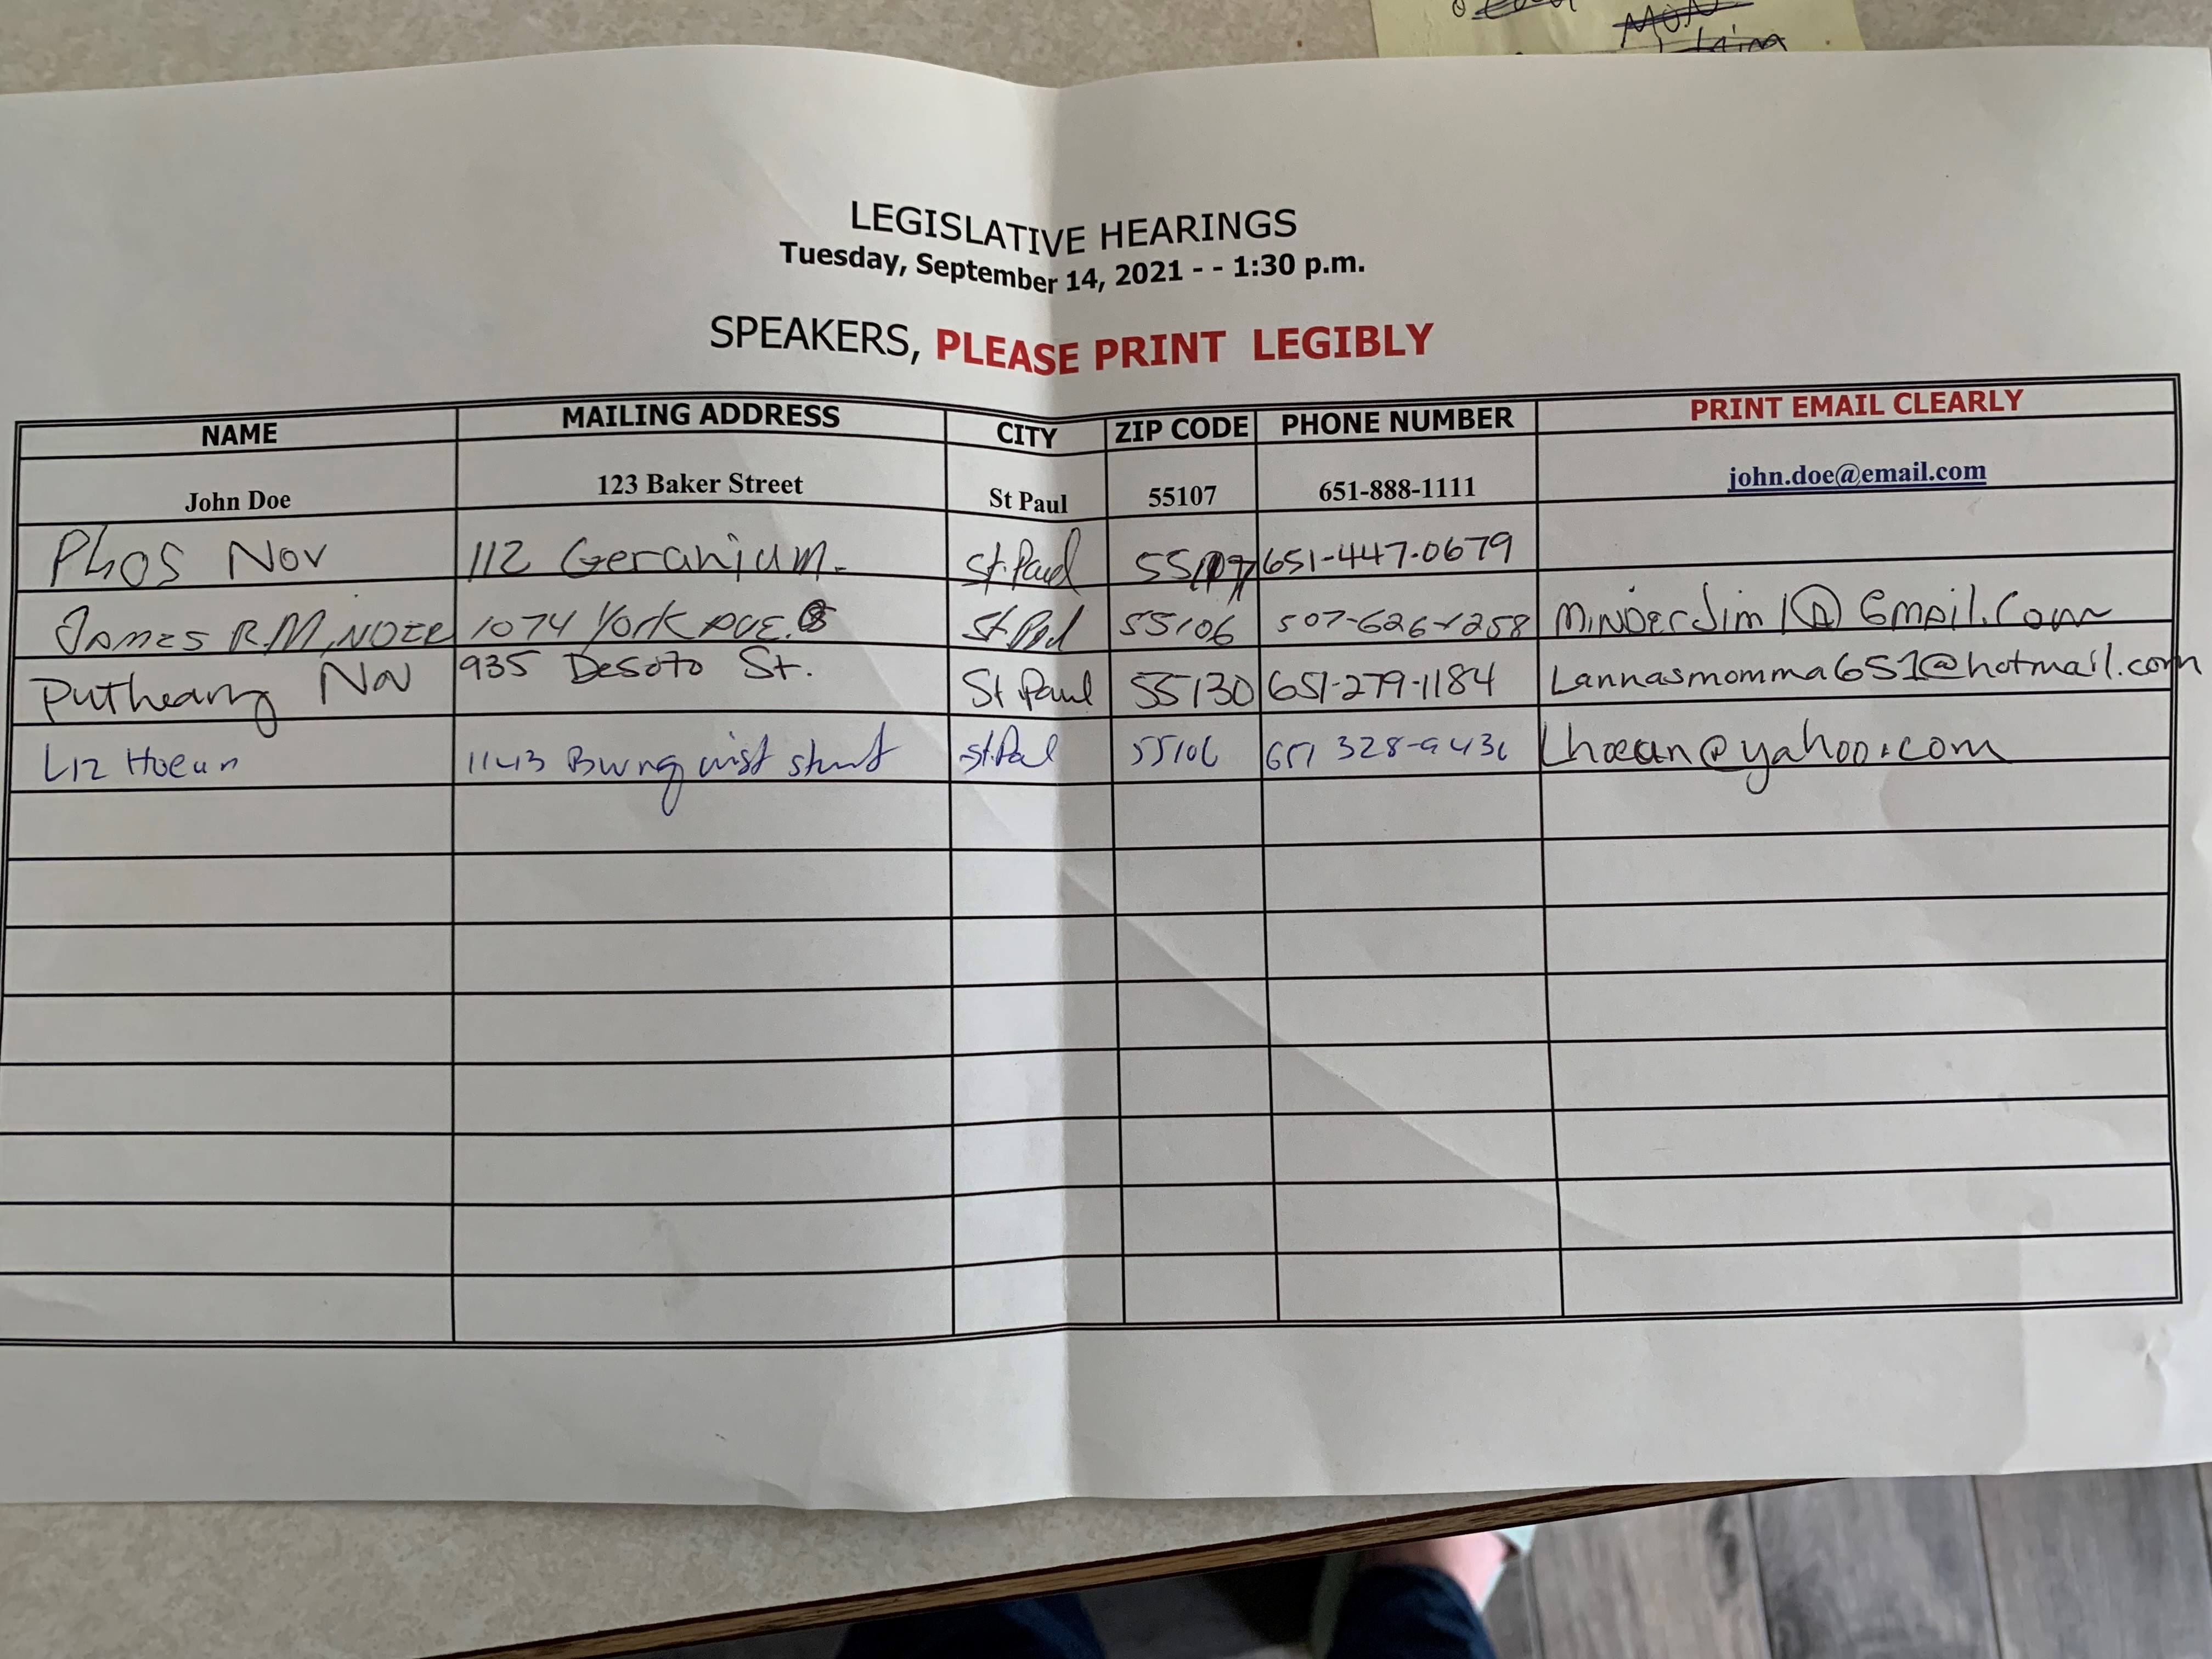 LEGISLATIVE HEARINGS
Tuesday, September 14, 2021 - - 1:30 p.m.
SPEAKERS, PLEASE PRINT LEGIBLY
NAME MAILING ADDRESS CITY ZIP CODE PHONE NUMBER PRINT EMAIL CLEARLY
John Doe 123 Baker Street St Paul 55107 651-888-1111 john.doe@email.com
Phos Nov 112 Geranium. St. Paul 651-447-0679
James R. 1074 York AVE. St. Paul 55106
Putheang Nov 935 Desoto St. St Paul 55130 651-279-1184 Lannasmomma651@hotmail.com
Liz Hoeun 1143 St. Paul 55106 Lhoeun@yahoo.com